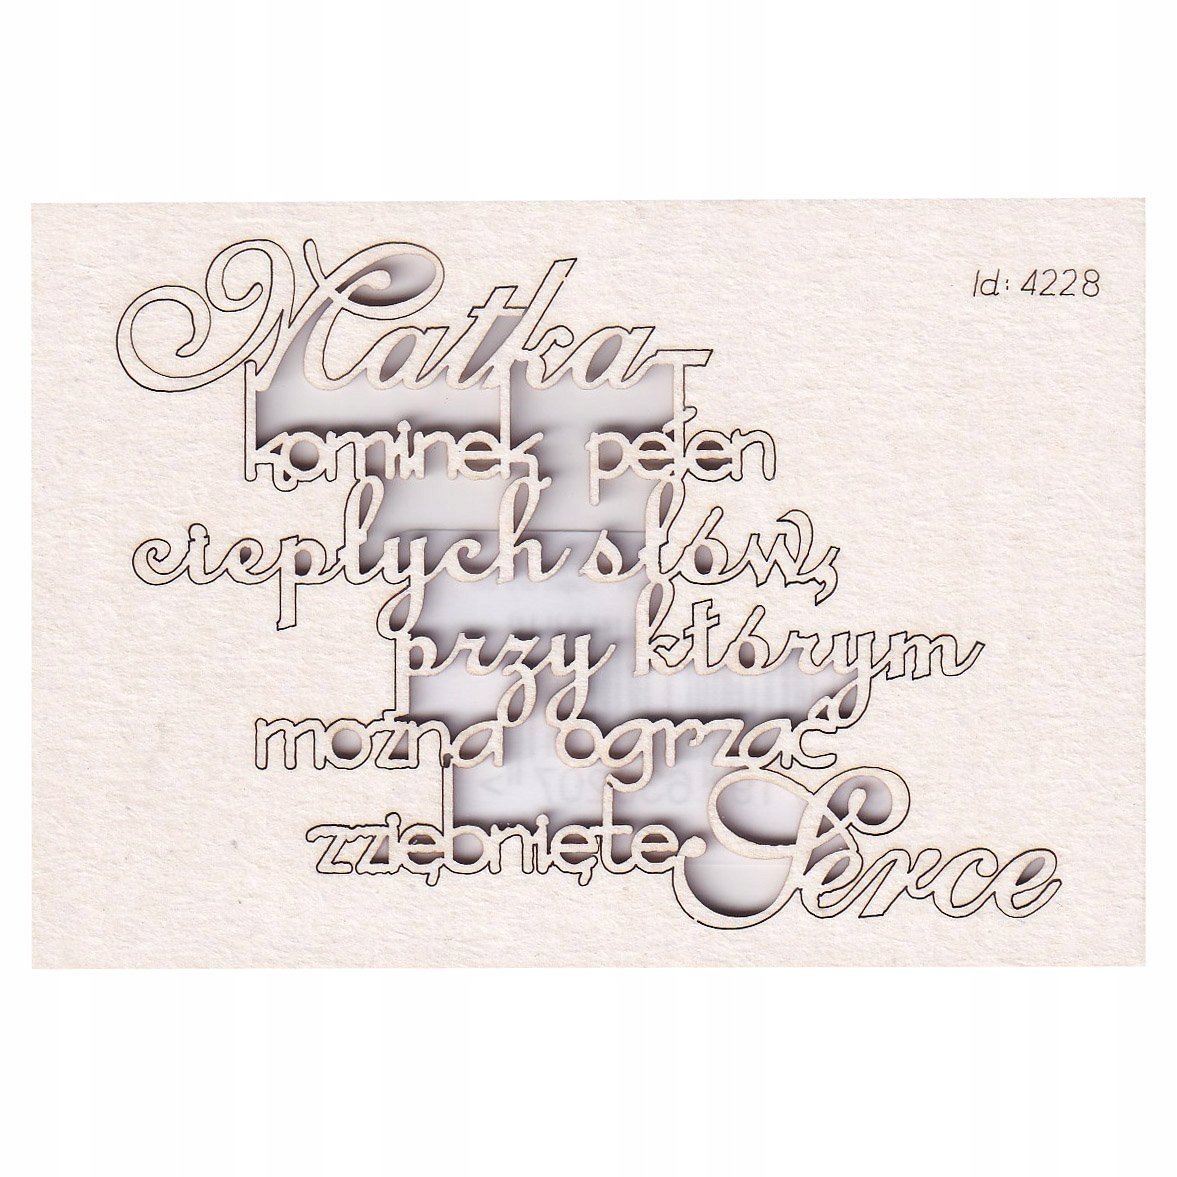 Id: 4228
Matka
kominek pełen
ciepłych słów,
przy którym
można ogrzać
zziębnięte Serce